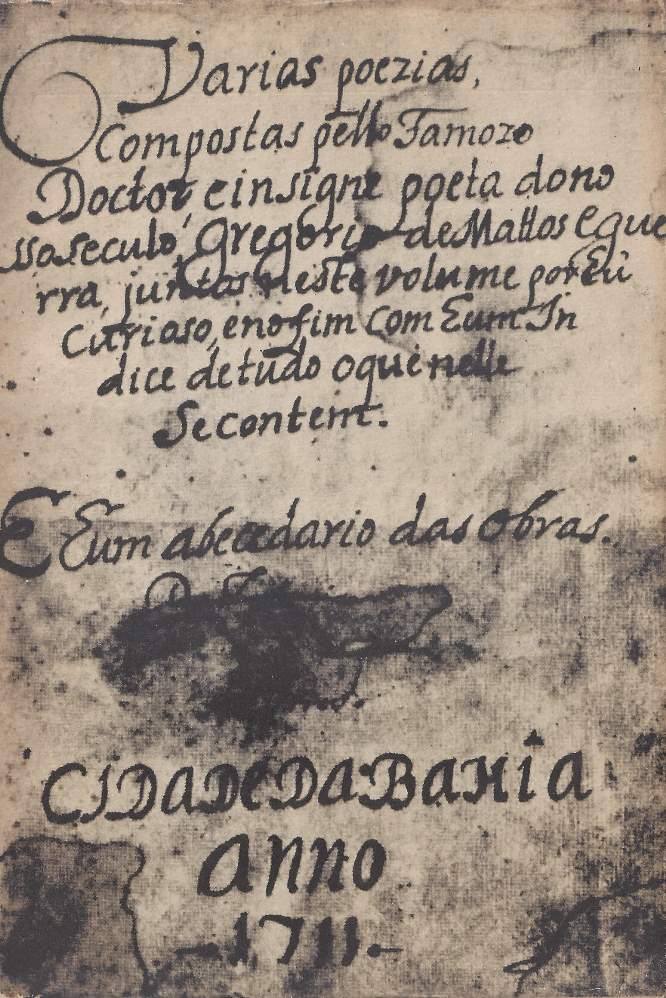 Varias poezias,
Compostas pello Famozo
Doctor, e insigne poeta dono
sso seculo, Gregorio de Mattos e gue
rra, juntas neste volume por Eũ
Curioso, e no fim com Eum In
dice de tudo o que nelle
Se contem.
E Eum abecedario das obras.
CIDADE DA BAHIA
anno
-1711.-